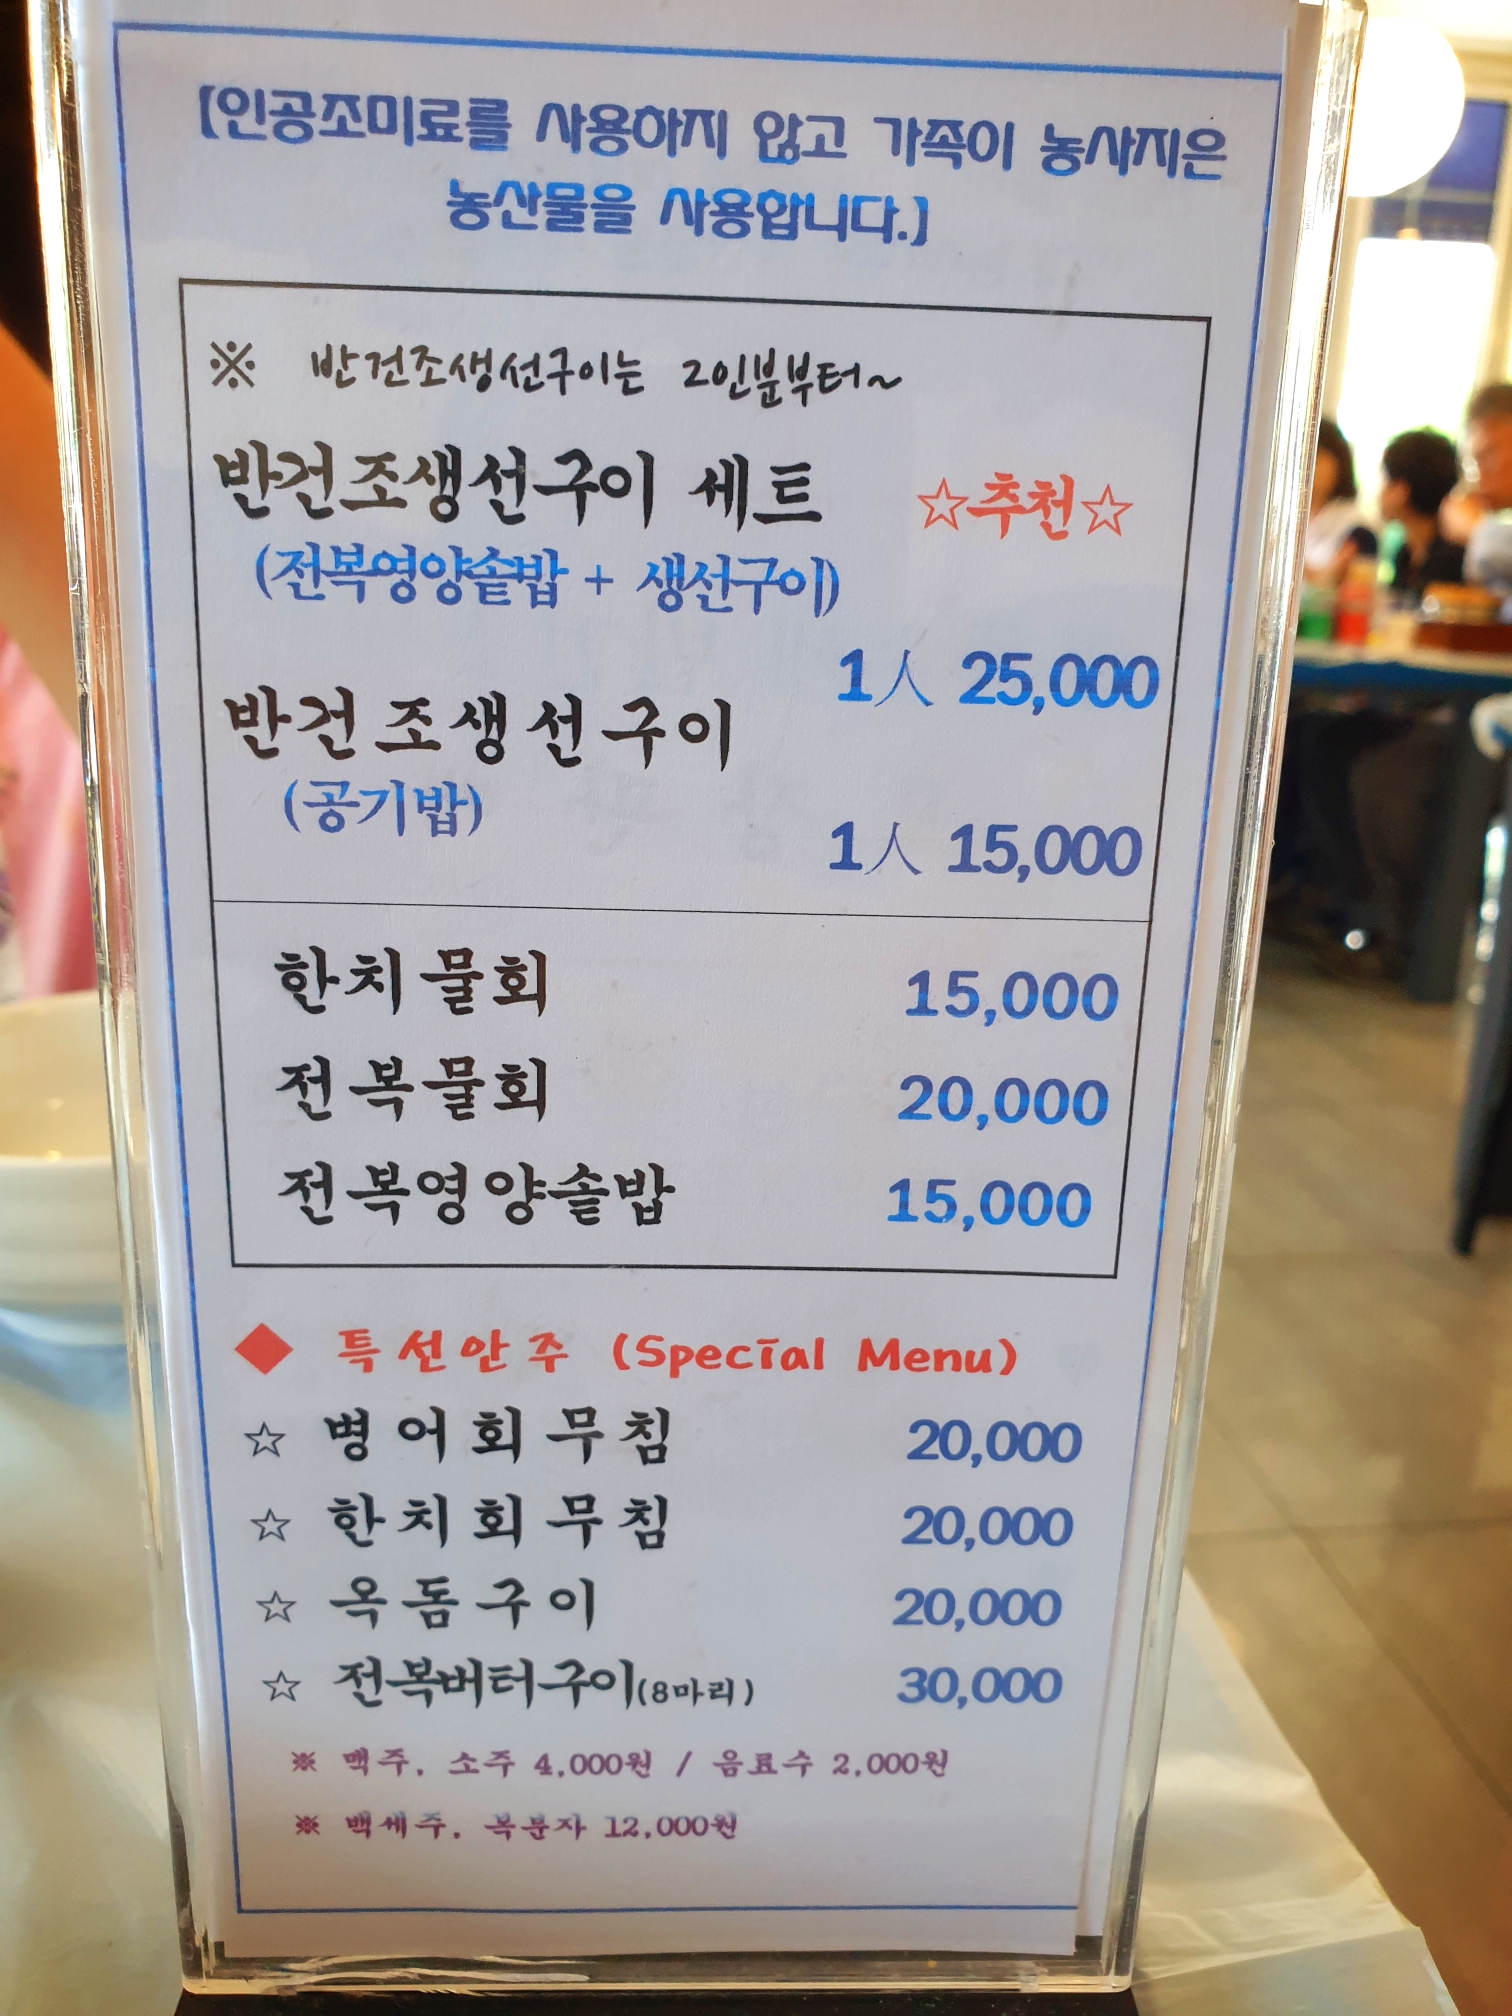 [인공조미료를 사용하지 않고 가족이 농사지은
농산물을 사용합니다.]
※ 반건조생선구이는 2인분부터~
반건조생선구이 세트 ☆추천☆
(전복영양솥밥 + 생선구이)
1人 25,000
반건조생선구이
(공기밥)
1人 15,000
한치물회 15,000
전복물회 20,000
전복영양솥밥 15,000
◆ 특선안주 (Special Menu)
☆ 병어회무침 20,000
☆ 한치회무침 20,000
☆ 옥돔구이 20,000
☆ 전복버터구이(8마리) 30,000
※ 맥주, 소주 4,000원 / 음료수 2,000원
※ 백세주, 복분자 12,000원